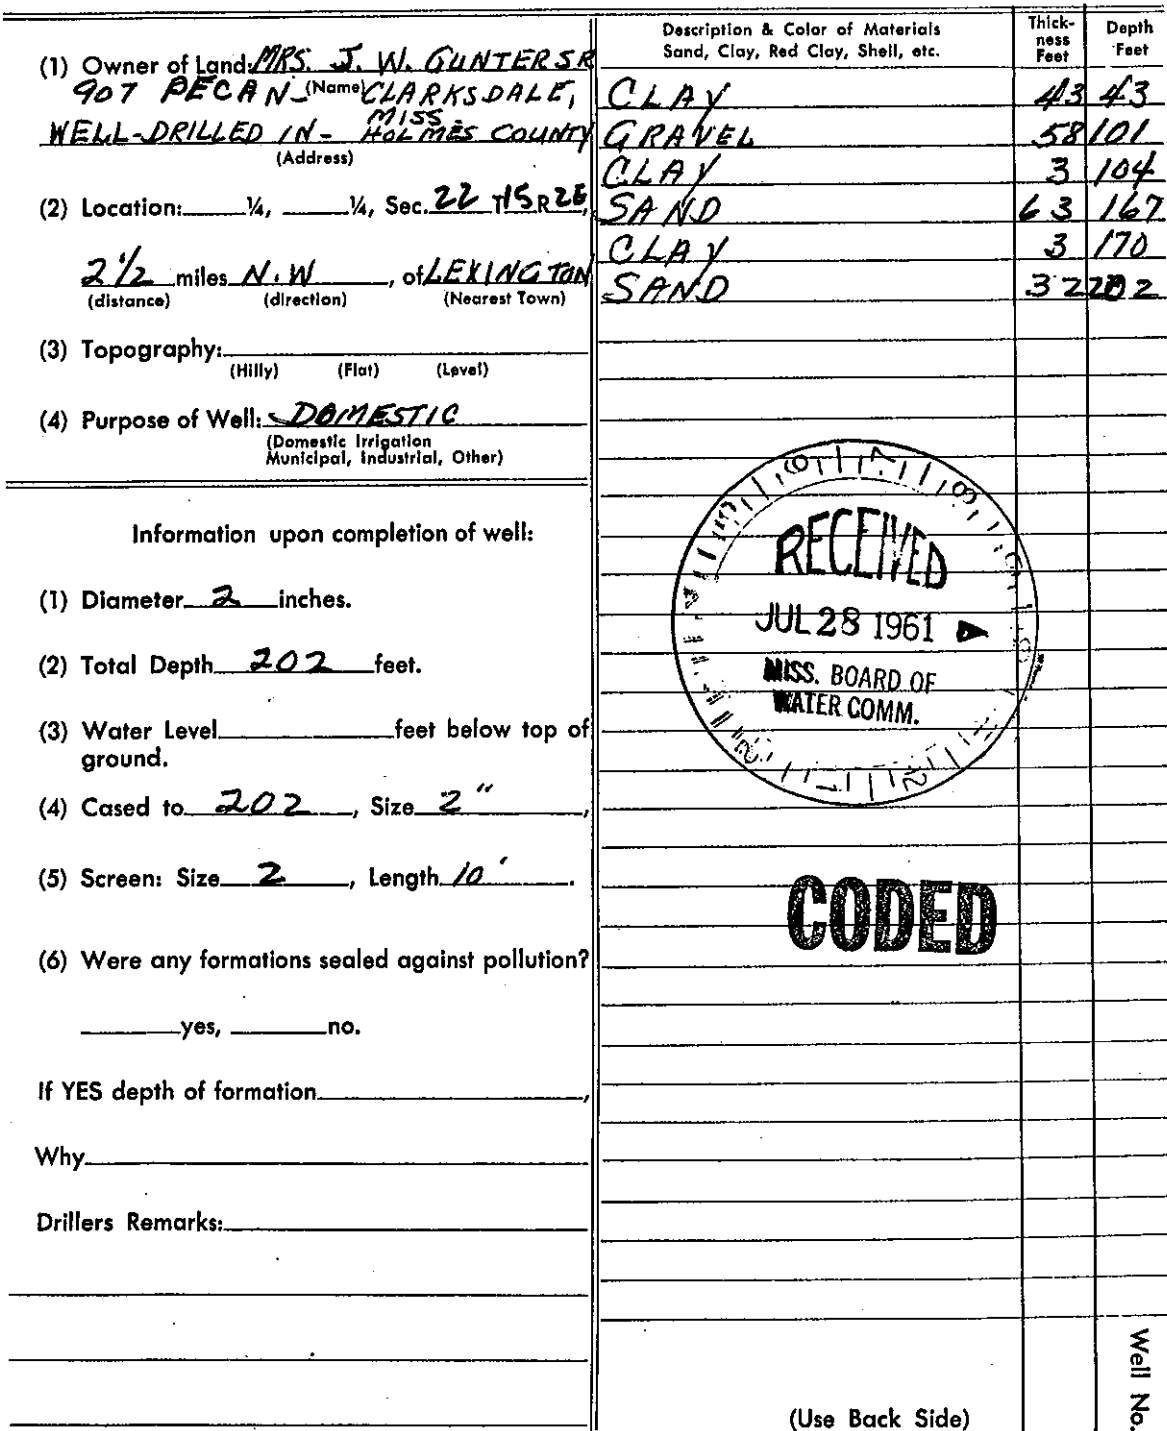 (1) Owner of Land: MRS. J. W. GUNTER SR
907 PECAN - (Name) CLARKSDALE,
MISS.
WELL-DRILLED IN - HOLMES COUNTY
(Address)
(2) Location: ¼, ¼, Sec. 22 T15 R2E,
2 1/2 miles N.W , of LEXINGTON
(distance) (direction) (Nearest Town)
(3) Topography:
(Hilly) (Flat) (Level)
(4) Purpose of Well: DOMESTIC
(Domestic Irrigation
Municipal, Industrial, Other)
Information upon completion of well:
(1) Diameter 2 inches.
(2) Total Depth 202 feet.
(3) Water Level feet below top of
ground.
(4) Cased to 202, Size 2",
(5) Screen: Size 2, Length 10'.
(6) Were any formations sealed against pollution?
yes, no.
If YES depth of formation ,
Why
Drillers Remarks:
Description & Color of Materials
Sand, Clay, Red Clay, Shell, etc.
Thick-
ness
Feet
Depth
Feet
CLAY 43 43
GRAVEL 58 101
CLAY 3 104
SAND 63 167
CLAY 3 170
SAND 32 202
RECEIVED
JUL 28 1961
MISS. BOARD OF
WATER COMM.
CODED
(Use Back Side)
Well No.